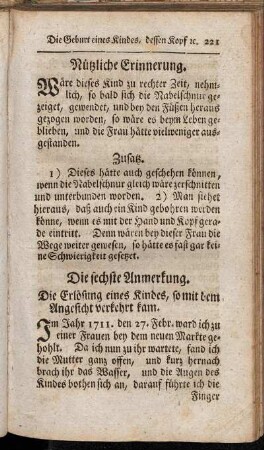 Die Geburt eines Kindes, dessen Kopf ꝛc. 221
Nützliche Erinnerung.
Wäre dieses Kind zu rechter Zeit, nehm-
lich, so bald sich die Nabelschnur ge-
zeiget, gewendet, und bey den Füßen heraus
gezogen worden, so wäre es beym Leben ge-
blieben, und die Frau hätte vielweniger aus-
gestanden.
Zusatz.
1) Dieses hätte auch geschehen können,
wenn die Nabelschnur gleich wäre zerschnitten
und unterbunden worden. 2) Man siehet
hieraus, daß auch ein Kind gebohren werden
könne, wenn es mit der Hand und Kopf gera-
de eintritt. Denn wären bey dieser Frau die
Wege weiter gewesen, so hätte es fast gar kei-
ne Schwierigkeit gesetzet.
Die sechste Anmerkung.
Die Erlösung eines Kindes, so mit dem
Angesicht verkehrt kam.
Im Jahr 1711. den 27. Febr. ward ich zu
einer Frauen bey dem neuen Markte ge-
hohlt. Da ich nun zu ihr wartete, fand ich
die Mutter ganz offen, und kurz hernach
brach ihr das Wasser, und die Augen des
Kindes bothen sich an, darauf führte ich die
Finger